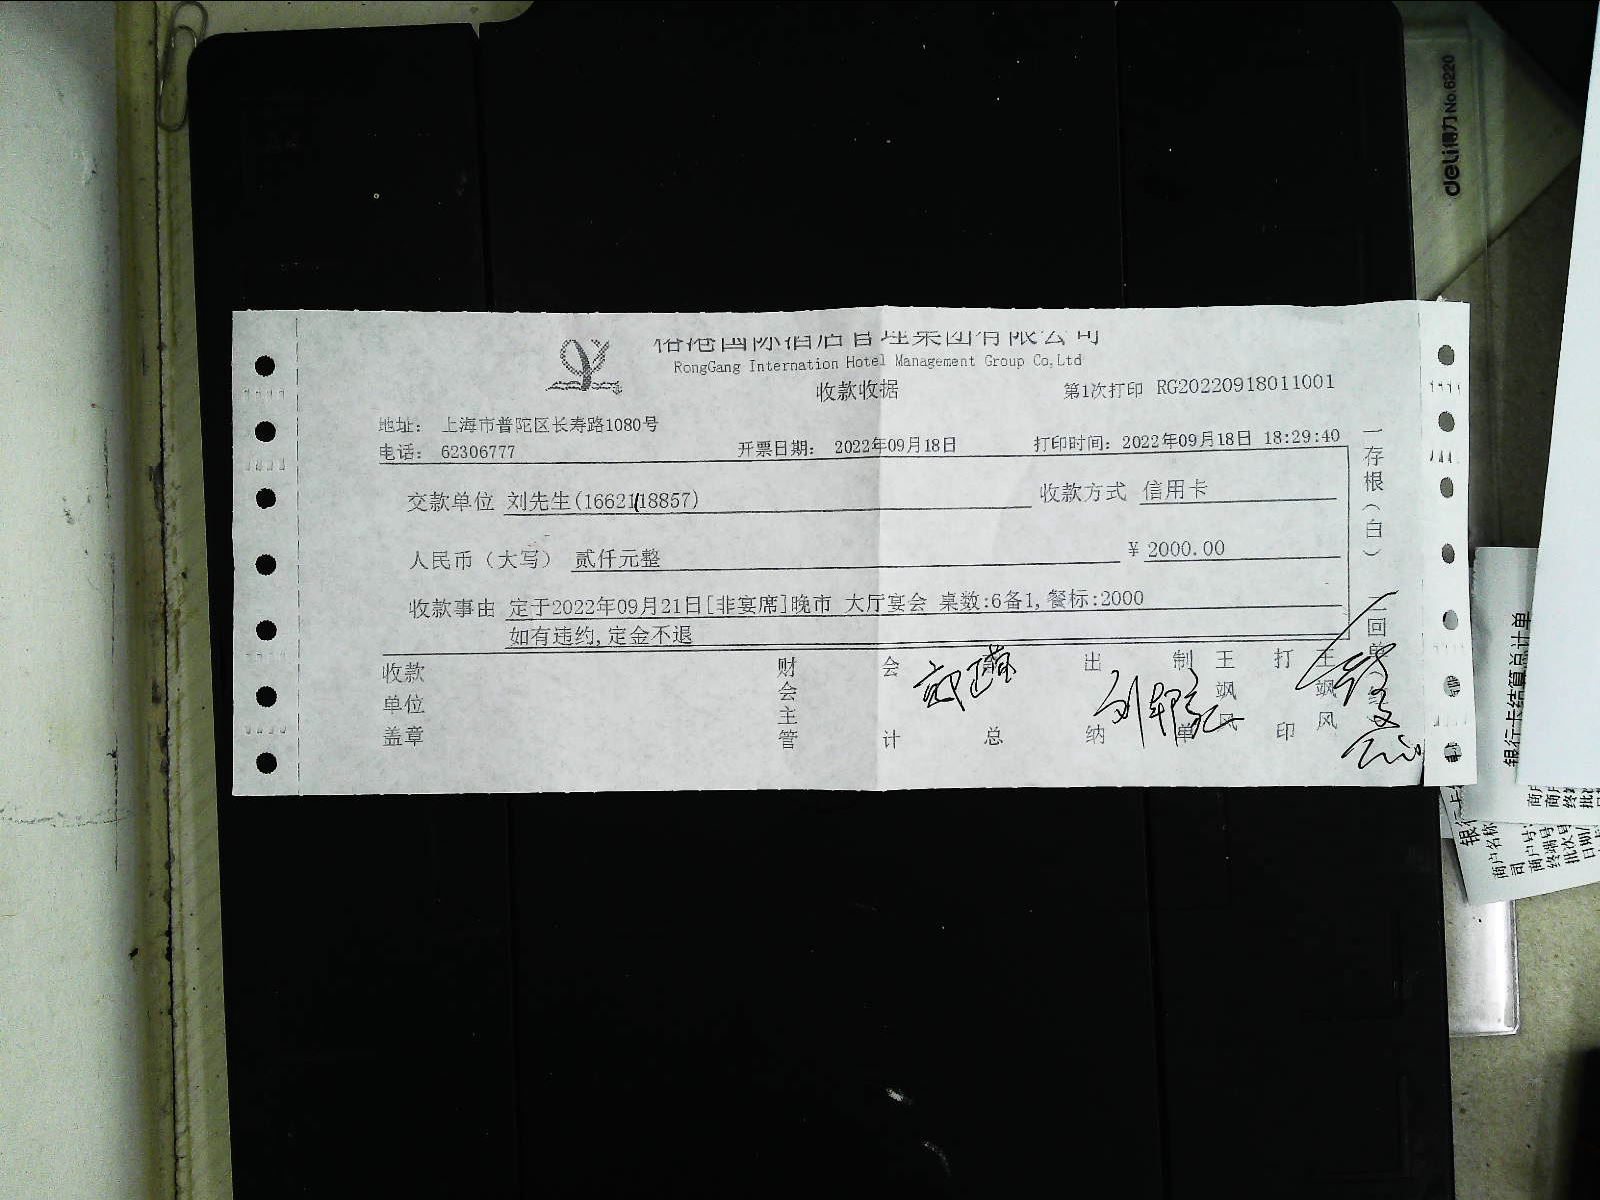 榕港国际酒店管理集团有限公司
RongGang Internation Hotel Management Group Co,Ltd
收款收据
第1次打印 RG20220918011001
地址： 上海市普陀区长寿路1080号
电话： 62306777
开票日期： 2022年09月18日
打印时间：2022年09月18日 18:29:40
交款单位 刘先生(16621118857)
收款方式 信用卡
人民币（大写） 贰仟元整
￥ 2000.00
收款事由 定于2022年09月21日[非宴席]晚市 大厅宴会 桌数:6备1,餐标:2000
如有违约,定金不退
收款单位盖章
财会主管
会计
总
出纳
制单
王飒风
打印
王飒风
一存根（白）
二回单
deli得力 No.6220
银行卡结算总计单
商户名称
司
商户号
终端号
批次号
日期/